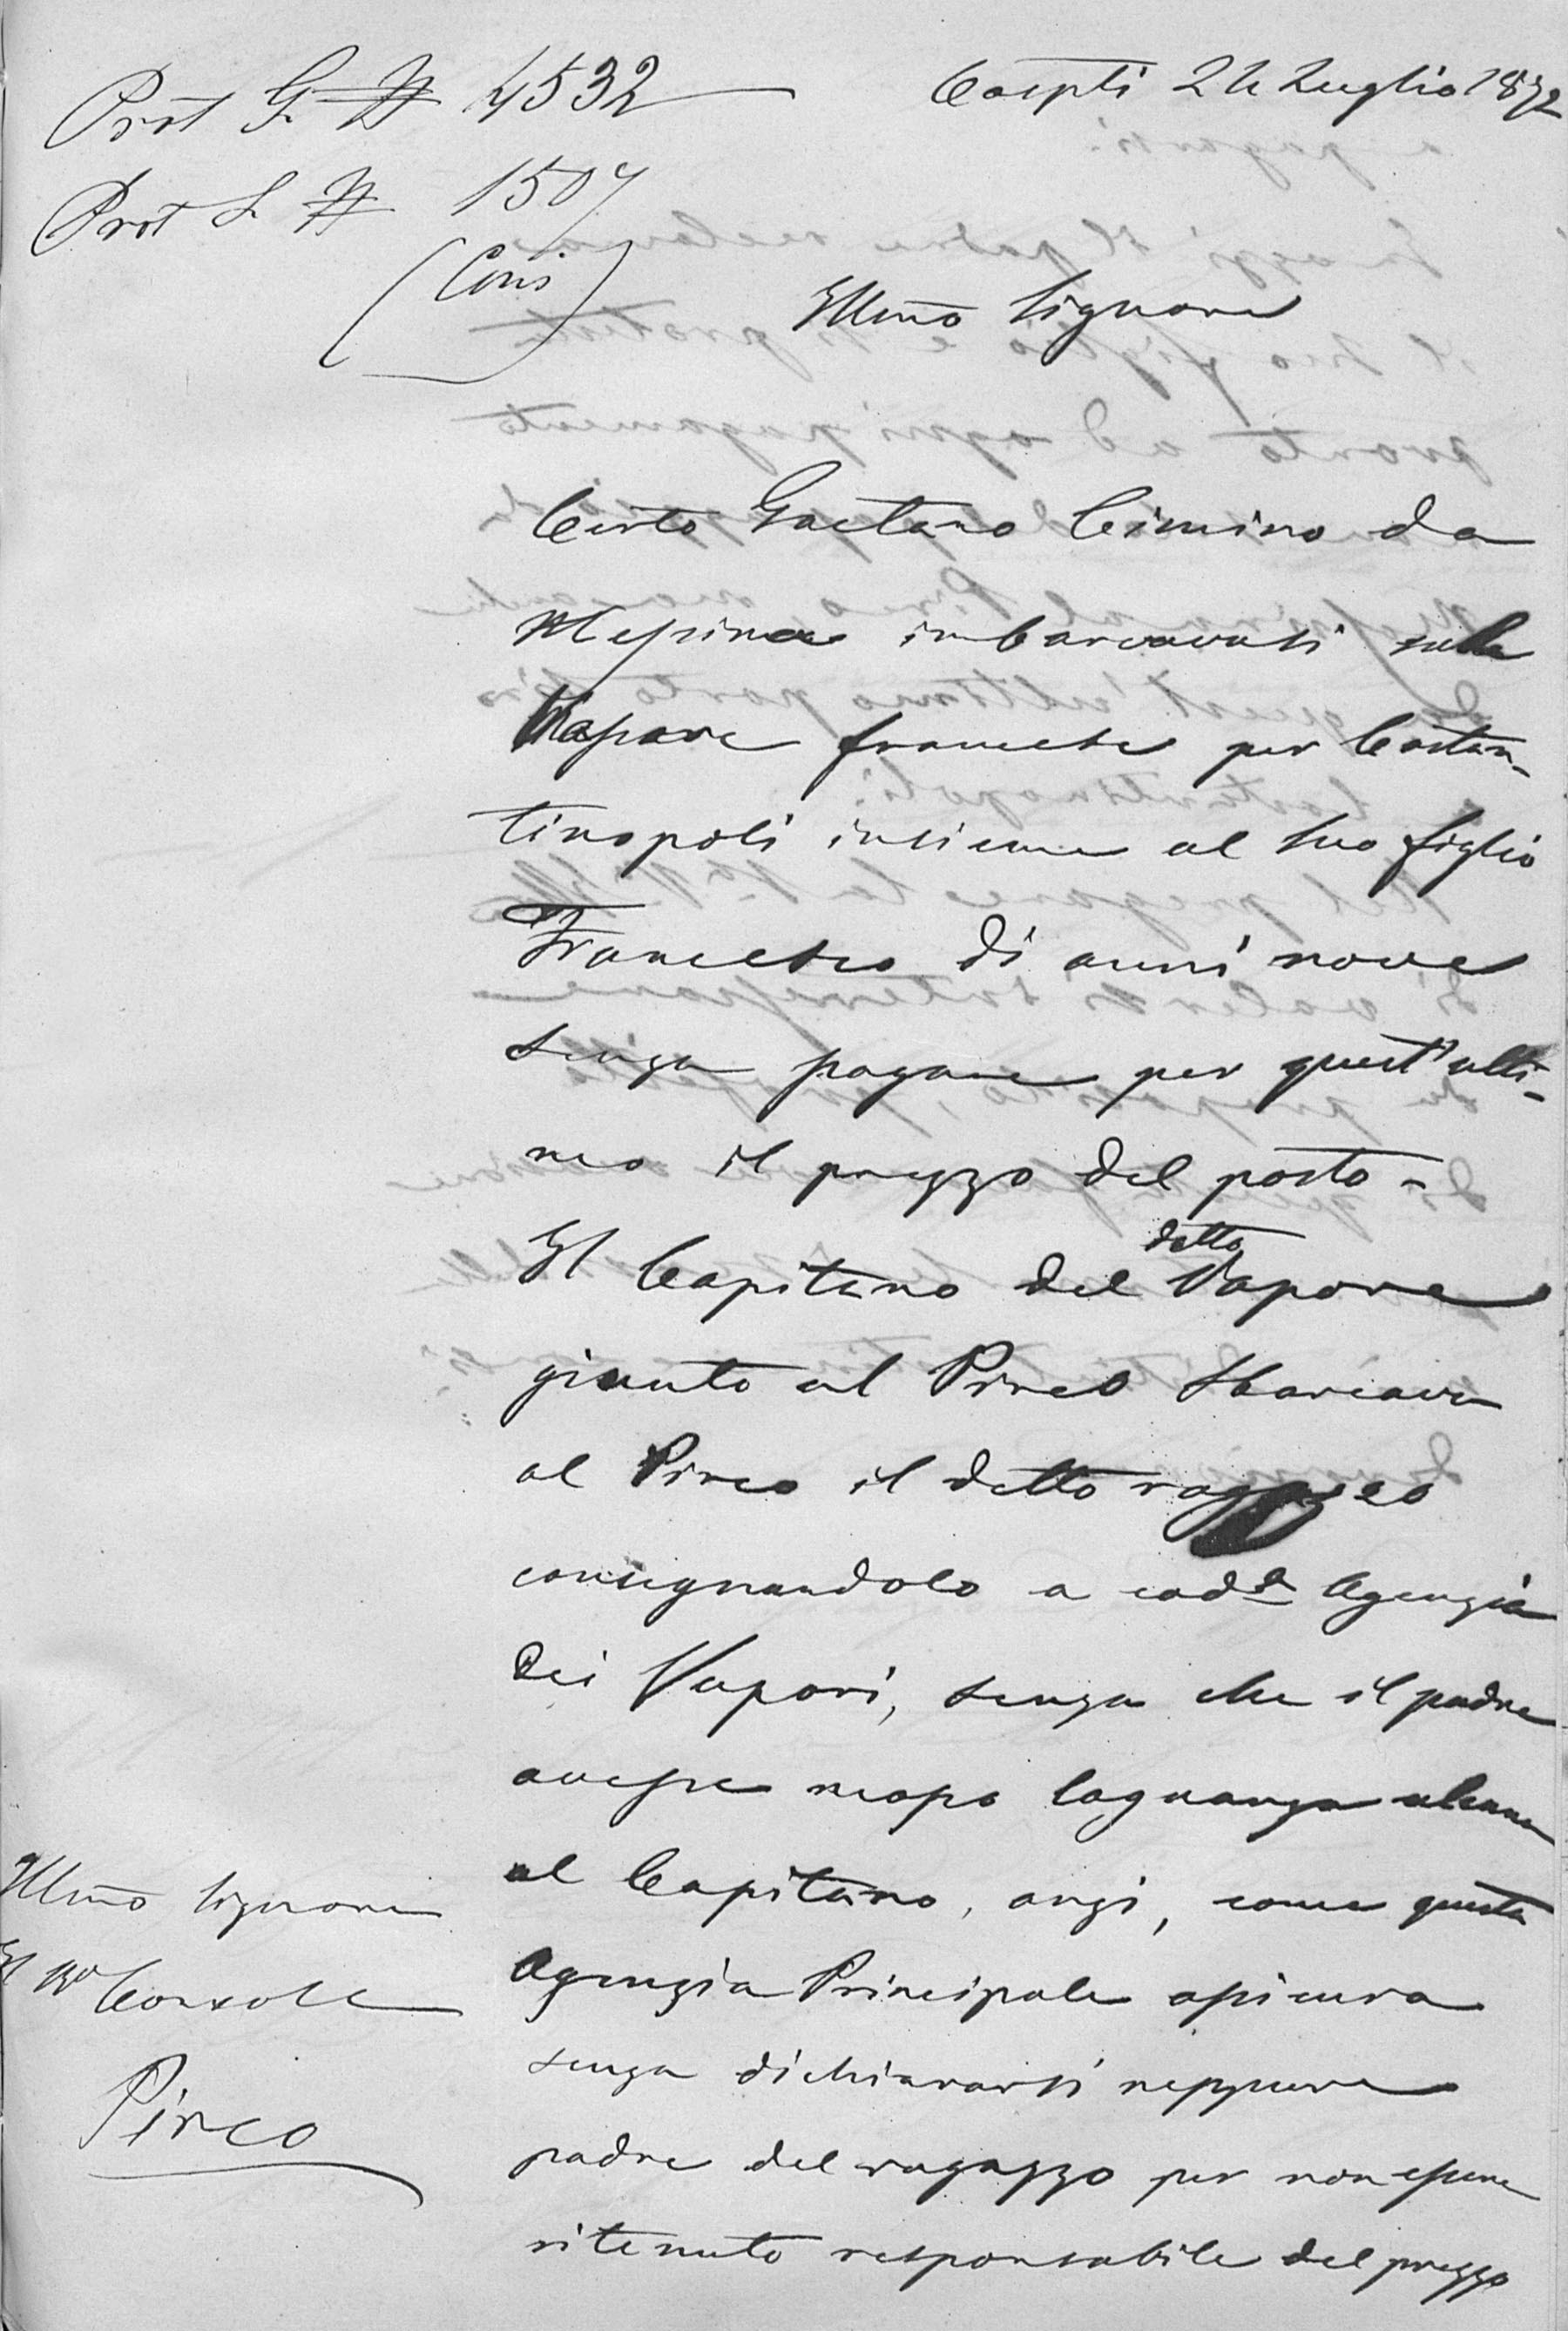 Prot G. N 4532
Costpli 24 Luglio 1872
Prot S. N 1507
(Cons)
Illmo Signore
Certo Gaetano Cimino da
Messina imbarcavasi sul
Vapore francese per Costan-
tinopoli insieme al suo figlio
Francesco di anni nove
senza pagare per quest'ulti-
mo il prezzo del posto -
Il Capitano del detto Vapore
giunto al Pireo sbarcava
al Pireo il detto ragazzo
consegnandolo a codª Agenzia
dei Vapori, senza che il padre
avesse mosso lagnanza alcuna
al Capitano, anzi, come questa
Agenzia Principale assicura
senza dichiararsi neppure
padre del ragazzo per non essere
ritenuto responsabile del prezzo
Illmo Signore
Il Console
Pireo